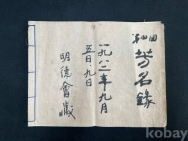 芳名錄
一九八二年九月
五日.九日
明德會藏
kobay